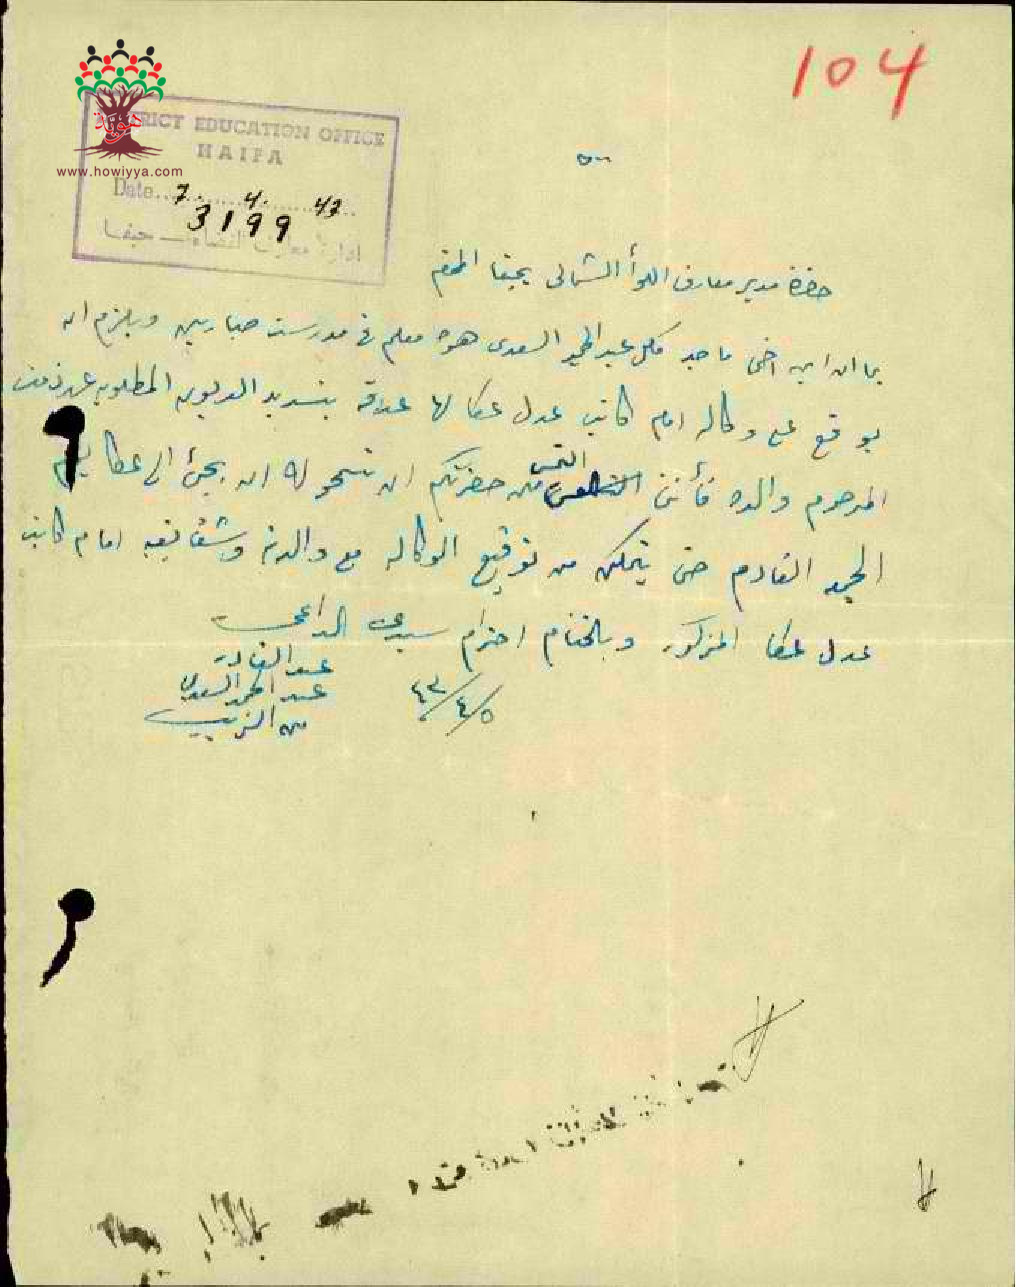 104
هوية
www.howiyya.com
DISTRICT EDUCATION OFFICE
HAIFA
Date 7. 4. 43
3199
ادارة معارف القضاء — حيفا
حضرة مدير معارف اللوأ الشمالي بحيفا المحترم
بما ان ابن اخي ماجد كامل عبد الحميد السعدي هو معلم في مدرسة صبارين ويلزم ان
يوقع على وكاله امام كاتب عدل عكا لها علاقه بتسديد الديون المطلوبه
المرحوم والده فأنني التمس من حضرتكم ان تسمحو له ان يجئ الى عكا ليوم
القادم حتى يتمكن من توقيع الوكاله مع والدته وشقائقه امام كاتب
عدل عكا المذكور وبالختام احترام سيدي الداعي
عبد القادر
عبد الحميد السعدي
من الزيب
٤٣/٤/٥